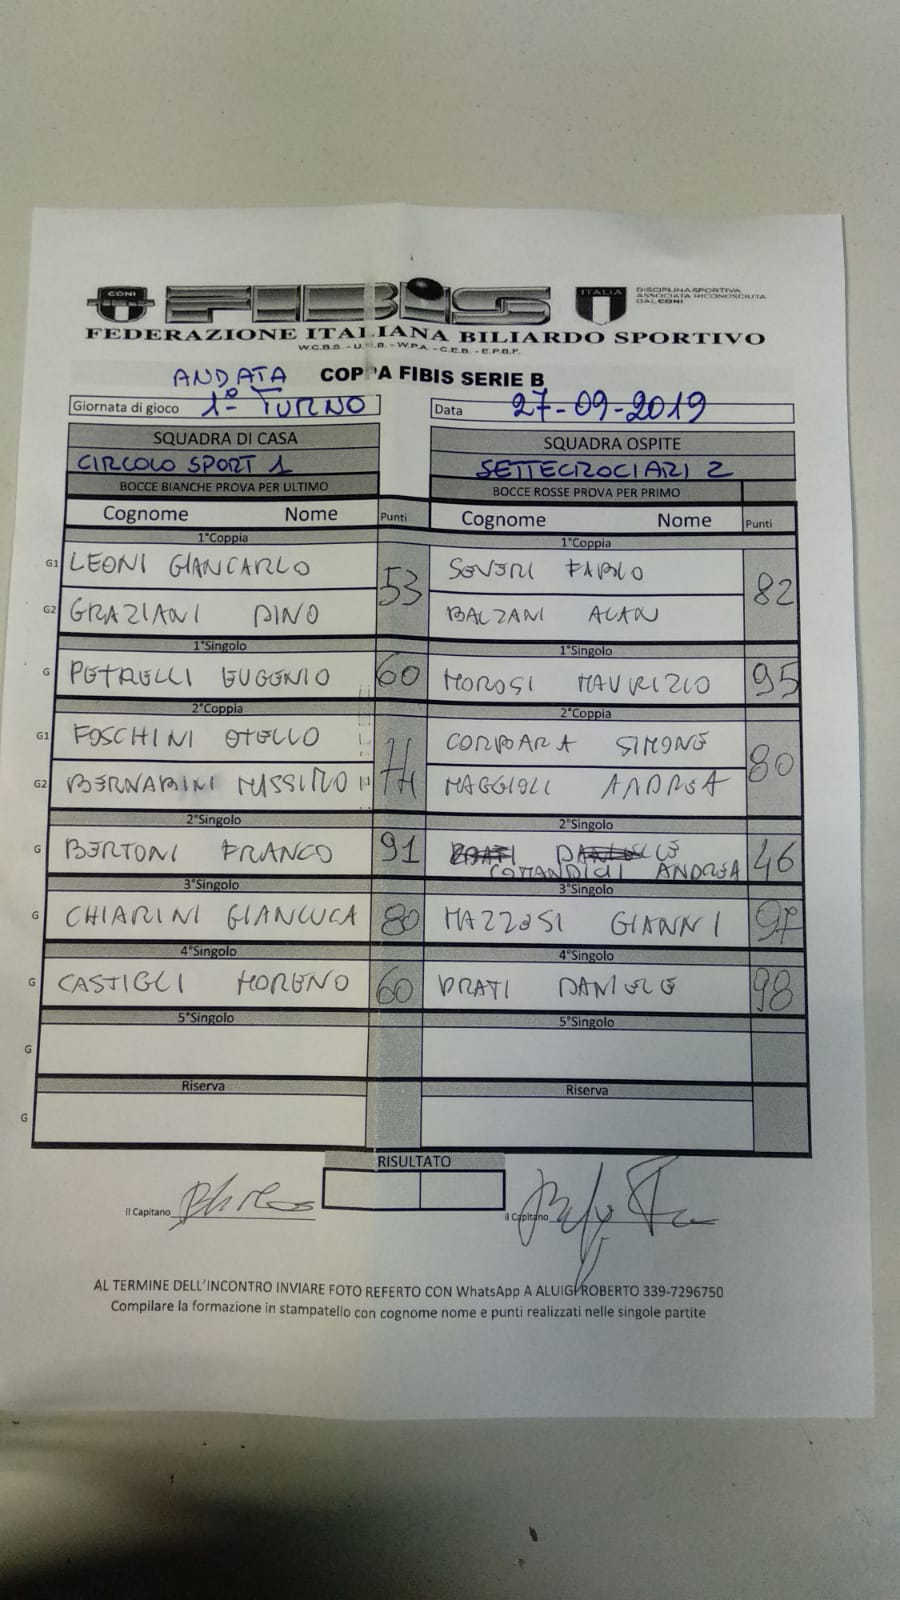 CONI
FIBIS
ITALIA
DISCIPLINA SPORTIVA
ASSOCIATA RICONOSCIUTA
DAL CONI
FEDERAZIONE ITALIANA BILIARDO SPORTIVO
ANDATA COPPA FIBIS SERIE B
Giornata di gioco 1° TURNO Data 27-09-2019
SQUADRA DI CASA SQUADRA OSPITE
CIRCOLO SPORT 1 SETTECROCIARI 2
BOCCE BIANCHE PROVA PER ULTIMO BOCCE ROSSE PROVA PER PRIMO
Cognome Nome Punti Cognome Nome Punti
1°Coppia 1°Coppia
G1 LEONI GIANCARLO 53 SEVERI FABIO 82
G2 GRAZIANI DINO BALZANI ALAN
1°Singolo 1°Singolo
G PETRELLI EUGENIO 60 MOROSI MAURIZIO 95
2°Coppia 2°Coppia
G1 FOSCHINI OTELLO CORBARA SIMONE 80
G2 BERNABINI MASSIMO MAGGIOLI ANDREA
2°Singolo 2°Singolo
G BERTONI FRANCO 91 COMANDINI ANDREA 46
3°Singolo 3°Singolo
G CHIARINI GIANLUCA 80 MAZZOSI GIANNI 97
4°Singolo 4°Singolo
G CASTIGLI MORENO 60 PRATI DANIELE 98
5°Singolo 5°Singolo
G
Riserva Riserva
G
RISULTATO
il Capitano il Capitano
AL TERMINE DELL'INCONTRO INVIARE FOTO REFERTO CON WhatsApp A ALUIGI ROBERTO 339-7296750
Compilare la formazione in stampatello con cognome nome e punti realizzati nelle singole partite